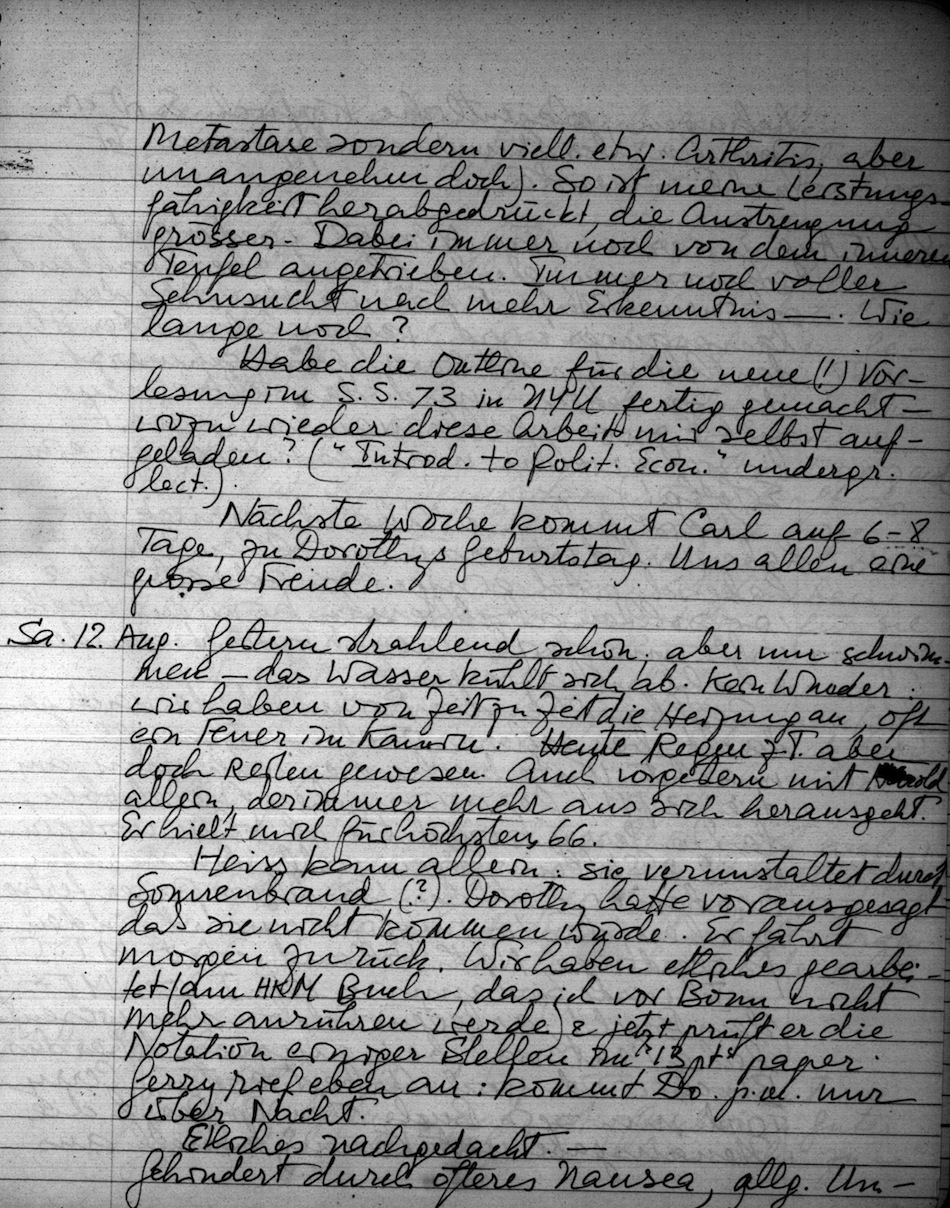 Metastase sondern viell. etw. Arthritis, aber
unangenehm doch). So ist meine Leistungs-
fähigkeit herabgedrückt, die Anstrengung
grösser. Dabei immer noch von dem inneren
Teufel angetrieben. Immer noch voller
Sehnsucht nach mehr Erkenntnis —. Wie
lange noch?
Habe die Outline für die neue (!) Vor-
lesung im S.S. 73 in NYU fertig gemacht —
wozu wieder diese Arbeit mir selbst auf-
geladen? ("Introd. to Polit. Econ." undergr.
lect.).
Nächste Woche kommt Carl auf 6-8
Tage, zu Dorothys Geburtstag. Uns allen eine
grosse Freude.
Sa. 12. Aug. Gestern strahlend schön, aber nun schwim-
men — das Wasser kühlt sich ab. Kein Wunder:
wir haben von Zeit zu Zeit die Heizung an, oft
ein Feuer im Kamin. Heute Regen z.T. aber
doch Reiten gewesen. Auch vorgestern mit
allein, der immer mehr aus sich herausgeht.
Er hielt mich für höchstens 66.
Heiss kam allein: sie verunstaltet durch
Sonnenbrand (?). Dorothy hatte vorausgesagt
das sie nicht kommen würde. Er fährt
morgen zurück. Wir haben etliches gearbei-
tet (am HKM Buch, das ich vor Bonn nicht
mehr anrühren werde) & jetzt prüft er die
Notation einiger Stellen im "13 pt" paper.
Gerry rief eben an: kommt Do. p.m. nur
über Nacht.
Etliches nachgedacht. —
Gehindert durch öfteres Nausea, allg. Un-